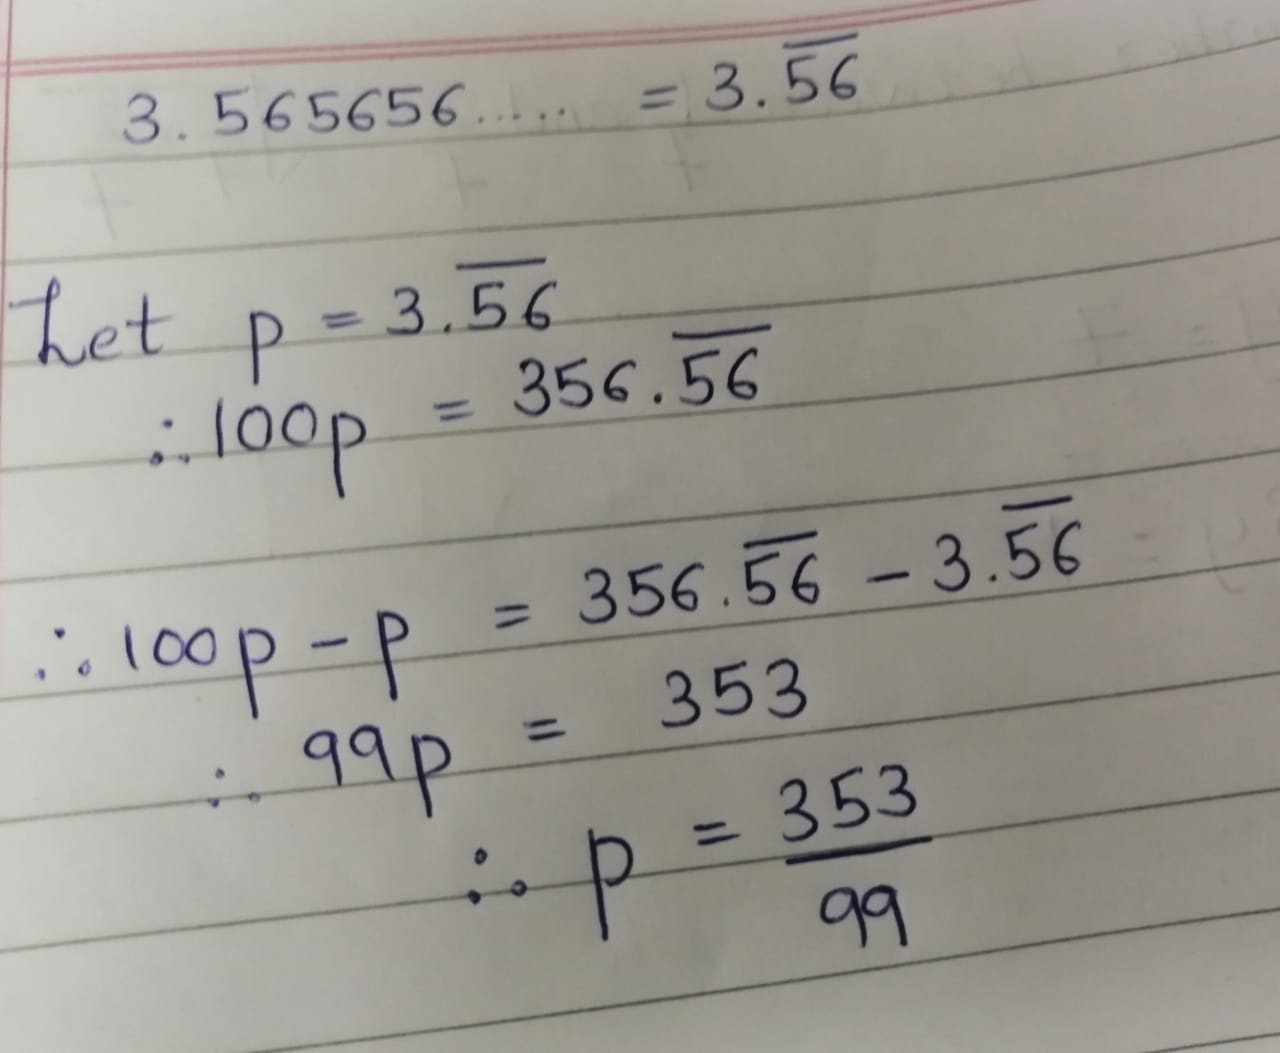 3.565656..... = 3.5̅6̅
Let p = 3.5̅6̅
∴ 100p = 356.5̅6̅
∴ 100p - p = 356.5̅6̅ - 3.5̅6̅
∴ 99p = 353
∴ p = 353/99